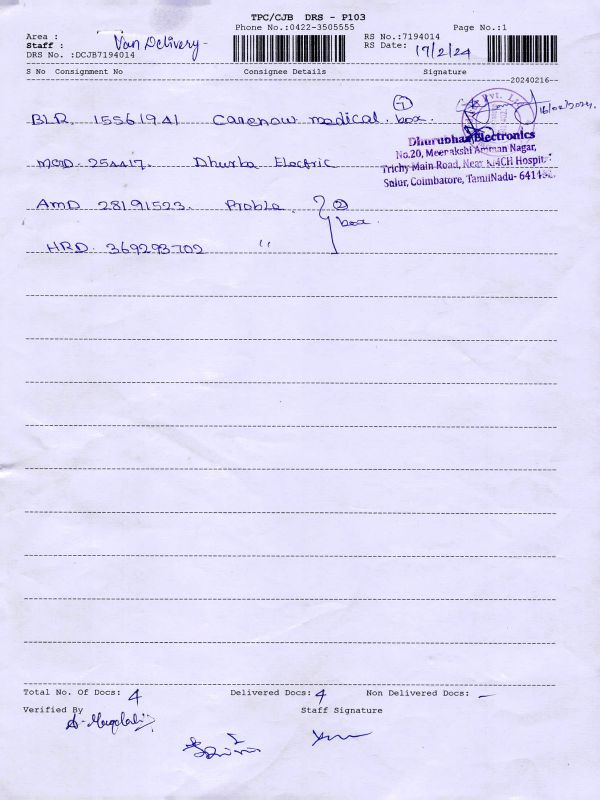 TPC/CJB DRS - P103
Phone No.:0422-3505555
Page No.:1
Area :
RS No.:7194014
Staff : Van Delivery
RS Date: 17/2/24
DRS No. :DCJB7194014
S No Consignment No Consignee Details Signature
20240216
BLR 15561941 Carenow medical. 7 box.
16/02/2024
Dhurubhaa Electronics
No.20, Meenakshi Amman Nagar,
Trichy Main Road, Near KMCH Hospital
Sulur, Coimbatore, TamilNadu- 641402.
MOD. 254417. Dhurba Electric
AMD 28191523. Probla. 2 box.
HRD. 369293702 "
Total No. Of Docs: 4 Delivered Docs: 4 Non Delivered Docs: -
Verified By Staff Signature